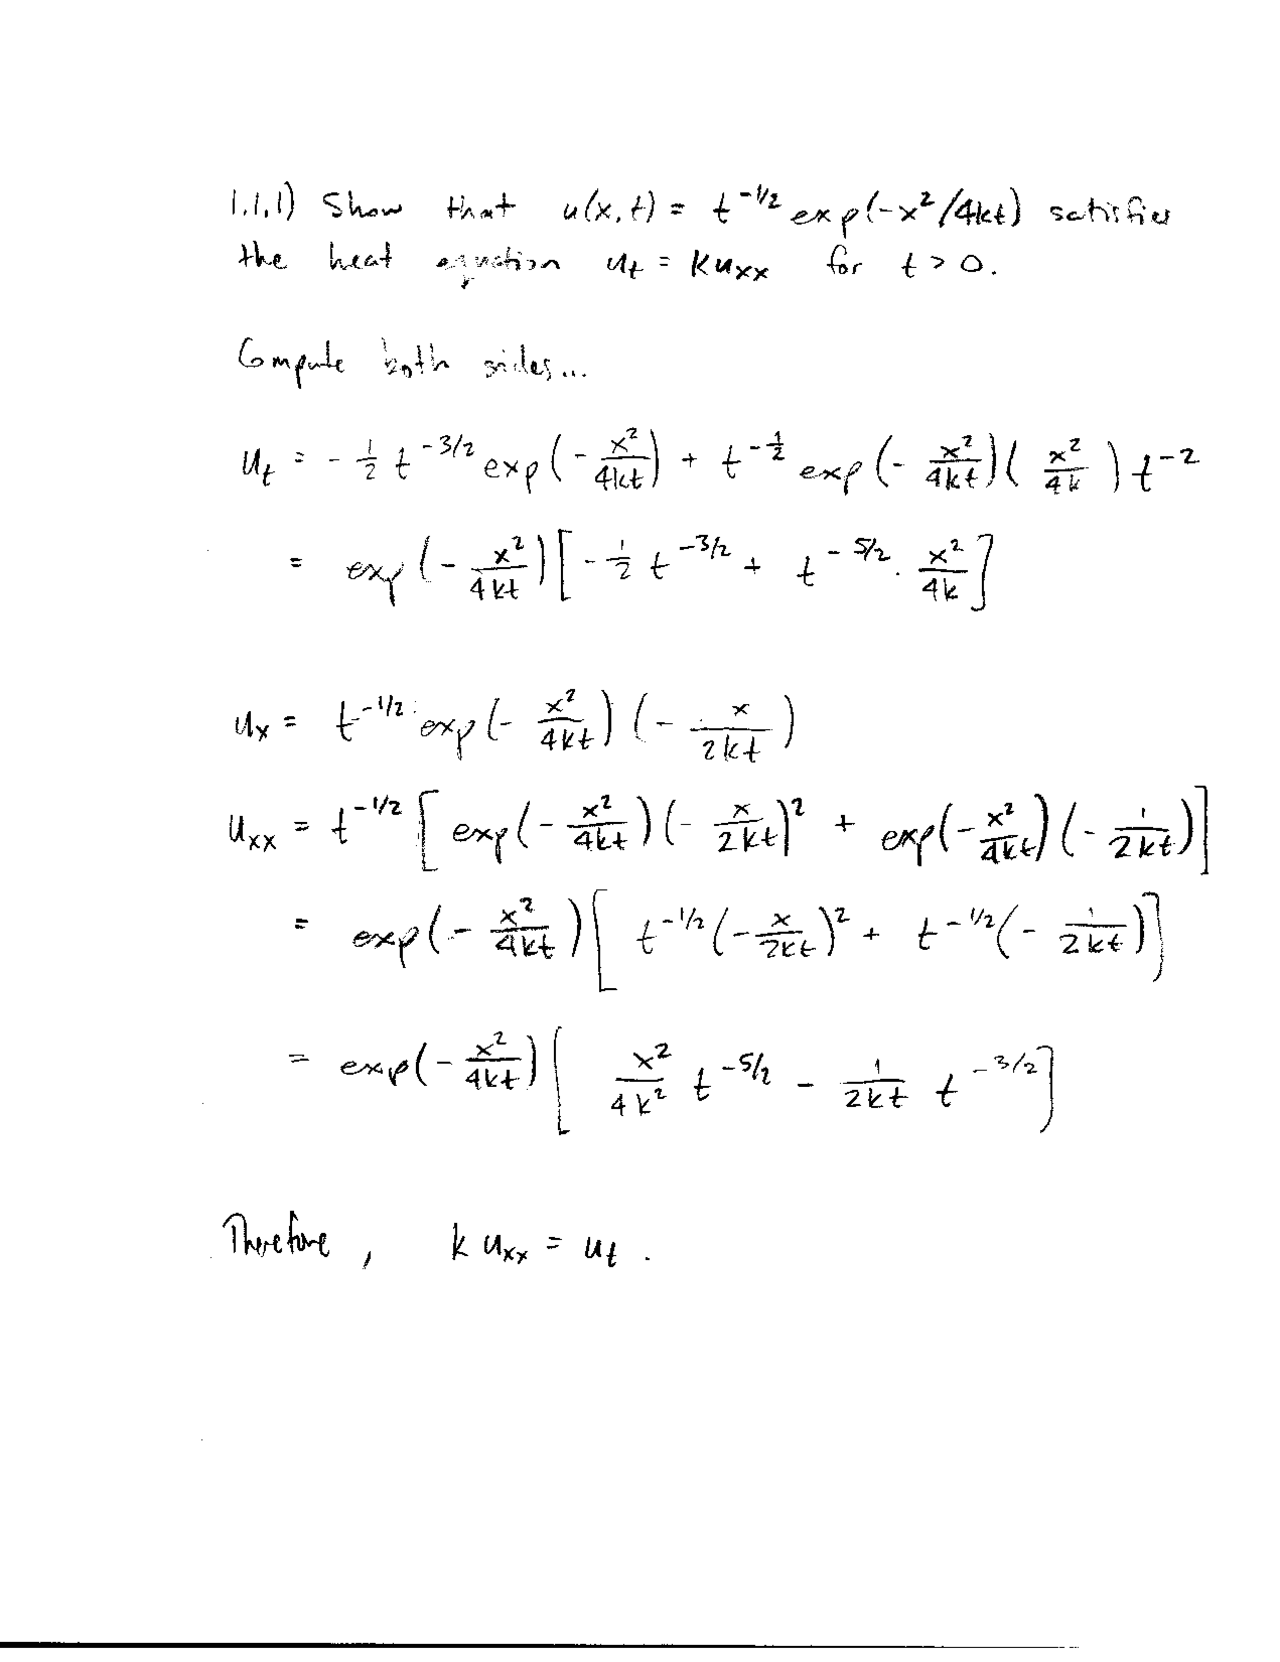 1.1.1) Show that u(x,t) = t^{-1/2} exp(-x^2/4kt) satisfies
the heat equation u_t = k u_{xx} for t > 0.
Compute both sides...
u_t = -\frac{1}{2} t^{-3/2} exp(-\frac{x^2}{4kt}) + t^{-\frac{1}{2}} exp(-\frac{x^2}{4kt})(\frac{x^2}{4k}) t^{-2}
= exp(-\frac{x^2}{4kt})[-\frac{1}{2} t^{-3/2} + t^{-5/2} \cdot \frac{x^2}{4k}]
u_x = t^{-1/2} exp(-\frac{x^2}{4kt})(-\frac{x}{2kt})
u_{xx} = t^{-1/2} [exp(-\frac{x^2}{4kt})(-\frac{x}{2kt})^2 + exp(-\frac{x^2}{4kt})(-\frac{1}{2kt})]
= exp(-\frac{x^2}{4kt})[t^{-1/2}(-\frac{x}{2kt})^2 + t^{-1/2}(-\frac{1}{2kt})]
= exp(-\frac{x^2}{4kt})[\frac{x^2}{4k^2} t^{-5/2} - \frac{1}{2kt} t^{-3/2}]
Therefore, k u_{xx} = u_t.